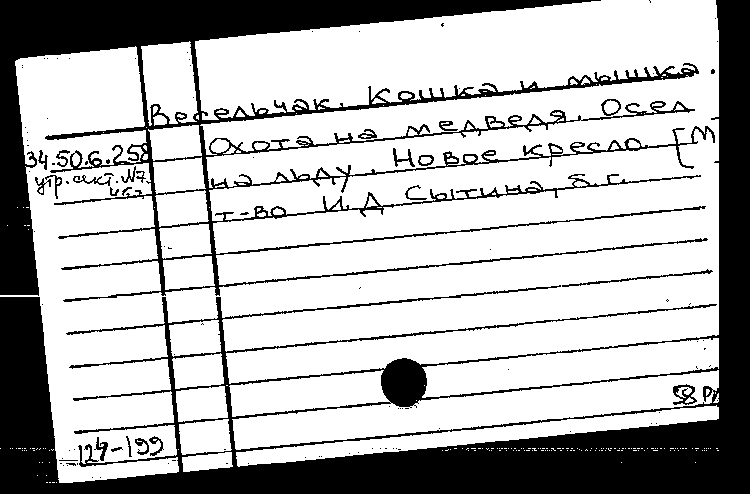 Весельчак. Кошка и мышка.
Охота на медведя. Осел
34.50.6.258
на льду. Новое кресло. [М
утр. акт. №7
т-во И. Д. Сытина, б. г.
58
124-199